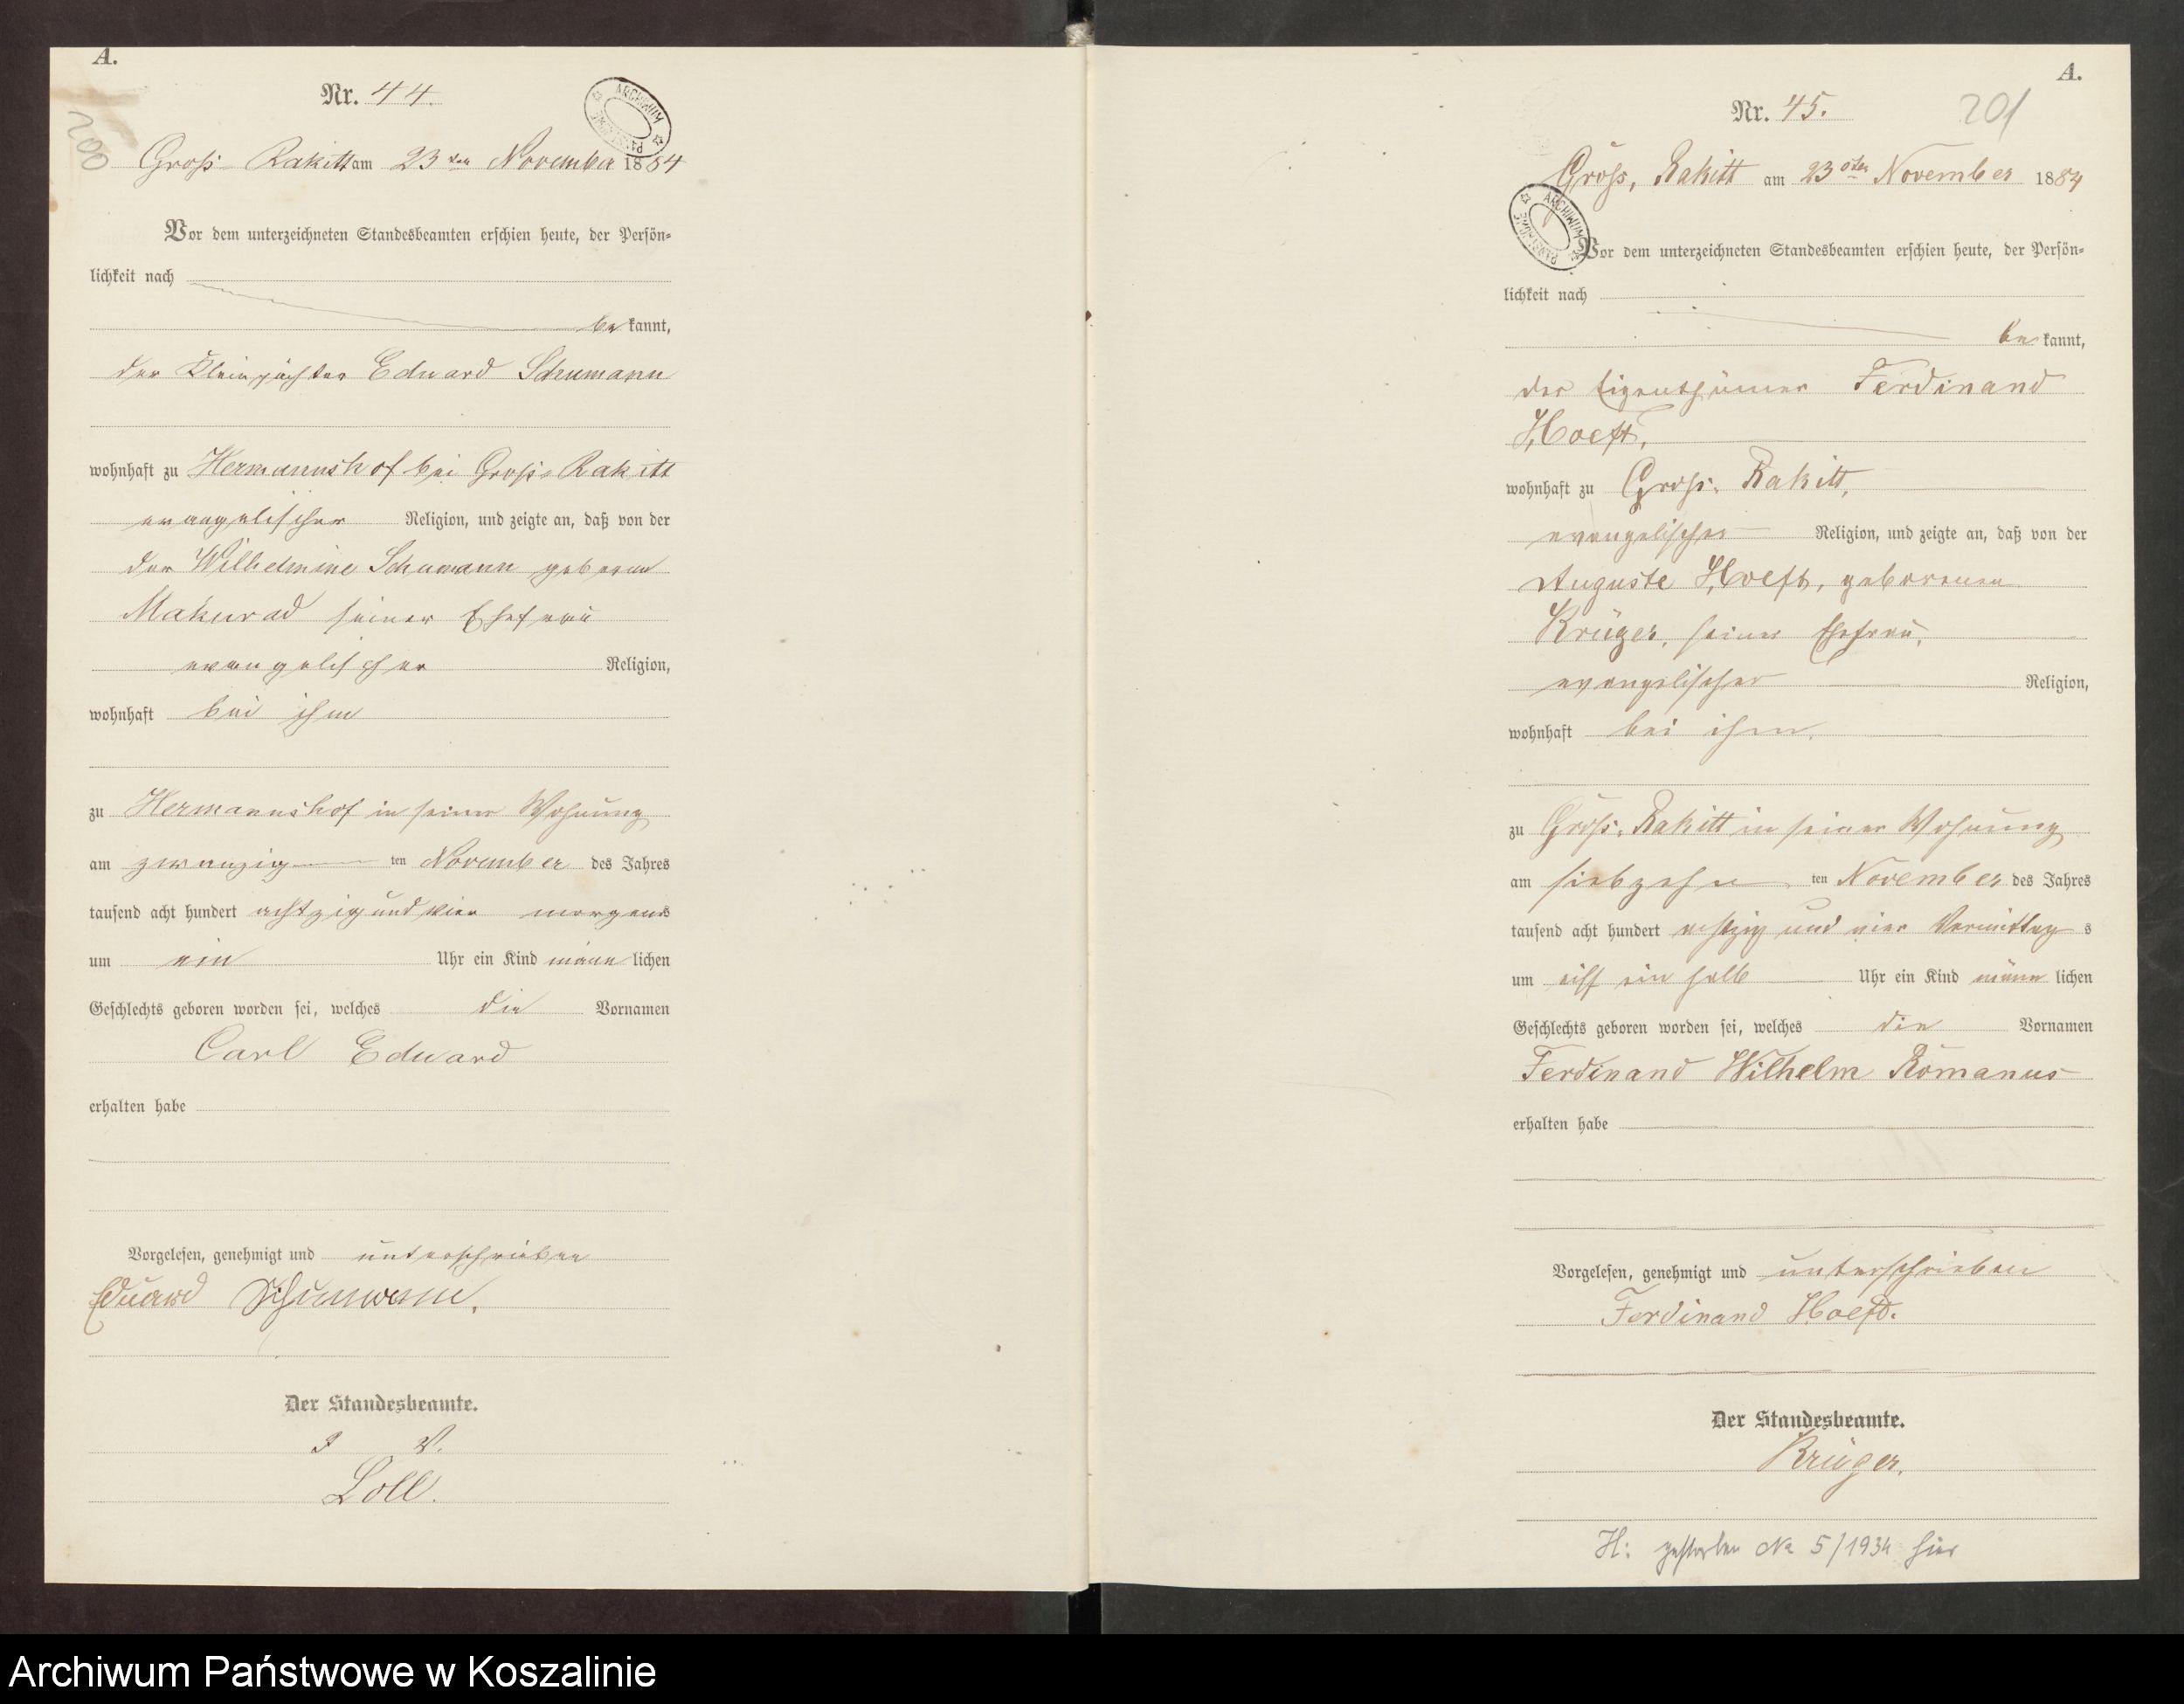 A.
Nr. 44.
200
ARCHIWUM PAŃSTWOWE
Groß-Rakitt am 23ten November 1884
Vor dem unterzeichneten Standesbeamten erschien heute, der Persön-
lichkeit nach
be kannt,
der Kleinpächter Eduard Schumann
wohnhaft zu Hermannshof bei Groß-Rakitt
evangelischer Religion, und zeigte an, daß von der
der Wilhelmine Schumann geboren
Makurad seiner Ehefrau
evangelischer Religion,
wohnhaft bei ihm
zu Hermannshof in seiner Wohnung
am zwanzig ten November des Jahres
tausend acht hundert achtzig und vier morgens
um ein Uhr ein Kind männ lichen
Geschlechts geboren worden sei, welches die Vornamen
Carl Eduard
erhalten habe
Vorgelesen, genehmigt und unterschrieben
Eduard Schumann.
Der Standesbeamte.
I V.
Loll.
A.
Nr. 45.
201
Groß, Rakitt am 23sten November 1884
ARCHIWUM PAŃSTWOWE
Vor dem unterzeichneten Standesbeamten erschien heute, der Persön-
lichkeit nach
be kannt,
der Eigenthümer Ferdinand
Hoeft,
wohnhaft zu Gross-Rakitt,
evangelischer Religion, und zeigte an, daß von der
Auguste Hoeft, geborenen
Krüger, seiner Ehefrau,
evangelischer Religion,
wohnhaft bei ihm,
zu Groß-Rakitt in seiner Wohnung
am siebzehn ten November des Jahres
tausend acht hundert achtzig und vier Vormittag s
um eilf ein halb Uhr ein Kind männ lichen
Geschlechts geboren worden sei, welches die Vornamen
Ferdinand Wilhelm Romanus
erhalten habe
Vorgelesen, genehmigt und unterschrieben
Ferdinand Hoeft.
Der Standesbeamte.
Krüger.
H: gestorben No 5/1934 hier
Archiwum Państwowe w Koszalinie